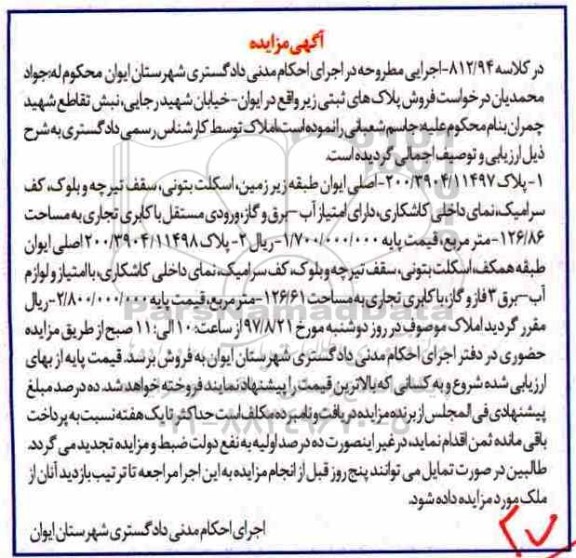 آگهی مزایده
در کلاسه ۸۱۲/۹۴-اجرایی مطروحه در اجرای احکام مدنی دادگستری شهرستان ایوان محکوم له:جواد
محمدیان درخواست فروش پلاک های ثبتی زیر واقع در ایوان-خیابان شهید رجایی، نبش تقاطع شهید
چمران بنام محکوم علیه: جاسم شعبانی را نموده است، املاک توسط کارشناس رسمی دادگستری به شرح
ذیل ارزیابی و توصیف اجمالی گردیده است.
۱- پلاک ۲۰۰/۳۹۰۴/۱۱۴۹۷-اصلی ایوان طبقه زیر زمین، اسکلت بتونی، سقف تیرچه و بلوک، کف
سرامیک، نمای داخلی کاشکاری، دارای امتیاز آب -برق و گاز، ورودی مستقل با کابری تجاری به مساحت
۱۲۶/۸۶-متر مربع، قیمت پایه ۱/۷۰۰/۰۰۰/۰۰۰-ریال ۲- پلاک ۲۰۰/۳۹۰۴/۱۱۴۹۸اصلی ایوان
طبقه همکف، اسکلت بتونی، سقف تیرچه وبلوک، کف سرامیک، نمای داخلی کاشکاری، باامتیاز و لوازم
آب-برق ۳ فاز و گاز، با کابری تجاری به مساحت ۱۲۶/۶۱-متر مربع، قیمت پایه ۲/۸۰۰/۰۰۰/۰۰۰-ریال
مقرر گردید املاک موصوف در روز دوشنبه مورخ ۹۷/۸/۲۱ از ساعت: ۱۰ الی: ۱۱ صبح از طریق مزایده
حضوری در دفتر اجرای احکام مدنی دادگستری شهرستان ایوان به فروش برسد. قیمت پایه از بهای
ارزیابی شده شروع و به کسانی که بالاترین قیمت را پیشنهاد نمایند فروخته خواهد شد. ده درصد مبلغ
پیشنهادی فی المجلس از برنده مزایده دریافت و نامبرده مکلف است حداکثر تا یک هفته نسبت به پرداخت
باقی مانده ثمن اقدام نماید، در غیر اینصورت ده درصد اولیه به نفع دولت ضبط و مزایده تجدید می گردد.
طالبین در صورت تمایل می توانند پنج روز قبل از انجام مزایده به این اجرا مراجعه تا ترتیب بازدید آنان از
ملک مورد مزایده داده شود.
اجرای احکام مدنی دادگستری شهرستان ایوان
ParsNamadData
۰۲۱-۸۸۳۴۹۶۷۰-۵